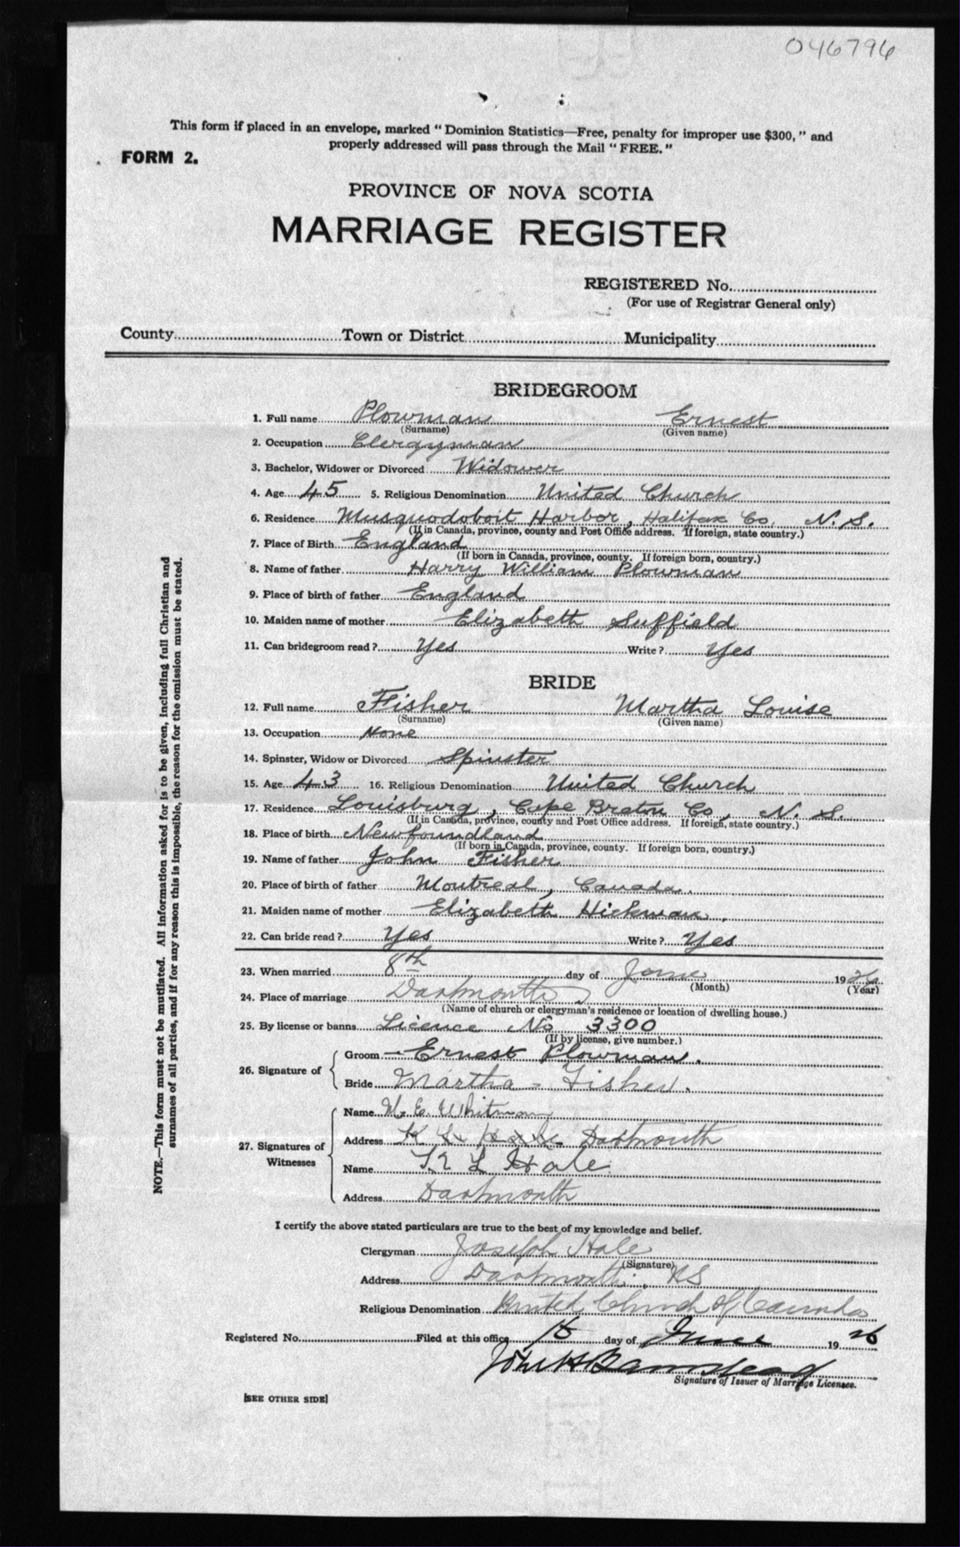 046796
This form if placed in an envelope, marked "Dominion Statistics—Free, penalty for improper use $300," and
properly addressed will pass through the Mail "FREE."
FORM 2.
PROVINCE OF NOVA SCOTIA
MARRIAGE REGISTER
REGISTERED No.
(For use of Registrar General only)
County Town or District Municipality
BRIDEGROOM
1. Full name Plowman Ernest
(Surname) (Given name)
2. Occupation Clergyman
3. Bachelor, Widower or Divorced Widower
4. Age 45 5. Religious Denomination United Church
6. Residence Musquodoboit Harbor, Halifax Co. N. S.
(If in Canada, province, county and Post Office address. If foreign, state country.)
7. Place of Birth England
(If born in Canada, province, county. If foreign born, country.)
8. Name of father Harry William Plowman
9. Place of birth of father England
10. Maiden name of mother Elizabeth Suffield
11. Can bridegroom read? Yes Write? Yes
BRIDE
12. Full name Fisher Martha Louise
(Surname) (Given name)
13. Occupation None
14. Spinster, Widow or Divorced Spinster
15. Age 43 16. Religious Denomination United Church
17. Residence Louisburg, Cape Breton Co, N. S.
(If in Canada, province, county and Post Office address. If foreign, state country.)
18. Place of birth Newfoundland
(If born in Canada, province, county. If foreign born, country.)
19. Name of father John Fisher
20. Place of birth of father Montreal, Canada.
21. Maiden name of mother Elizabeth Hickman.
22. Can bride read? Yes Write? Yes
23. When married 8th day of June 1926
(Month) (Year)
24. Place of marriage Dartmouth
(Name of church or clergyman's residence or location of dwelling house.)
25. By license or banns Licence No 3300
(If by license, give number.)
26. Signature of
Groom Ernest Plowman.
Bride Martha Fisher.
27. Signatures of Witnesses
Name Whitman
Address Dartmouth
Name L Hale
Address Dartmouth
I certify the above stated particulars are true to the best of my knowledge and belief.
Clergyman Joseph Hale
(Signature)
Address Dartmouth, NS
Religious Denomination United Church of Canada
Registered No. Filed at this office day of June 1926
Signature of Issuer of Marriage Licenses.
[SEE OTHER SIDE]
NOTE.—This form must not be mutilated. All information asked for is to be given, including full Christian and
surnames of all parties, and if for any reason this is impossible, the reason for the omission must be stated.